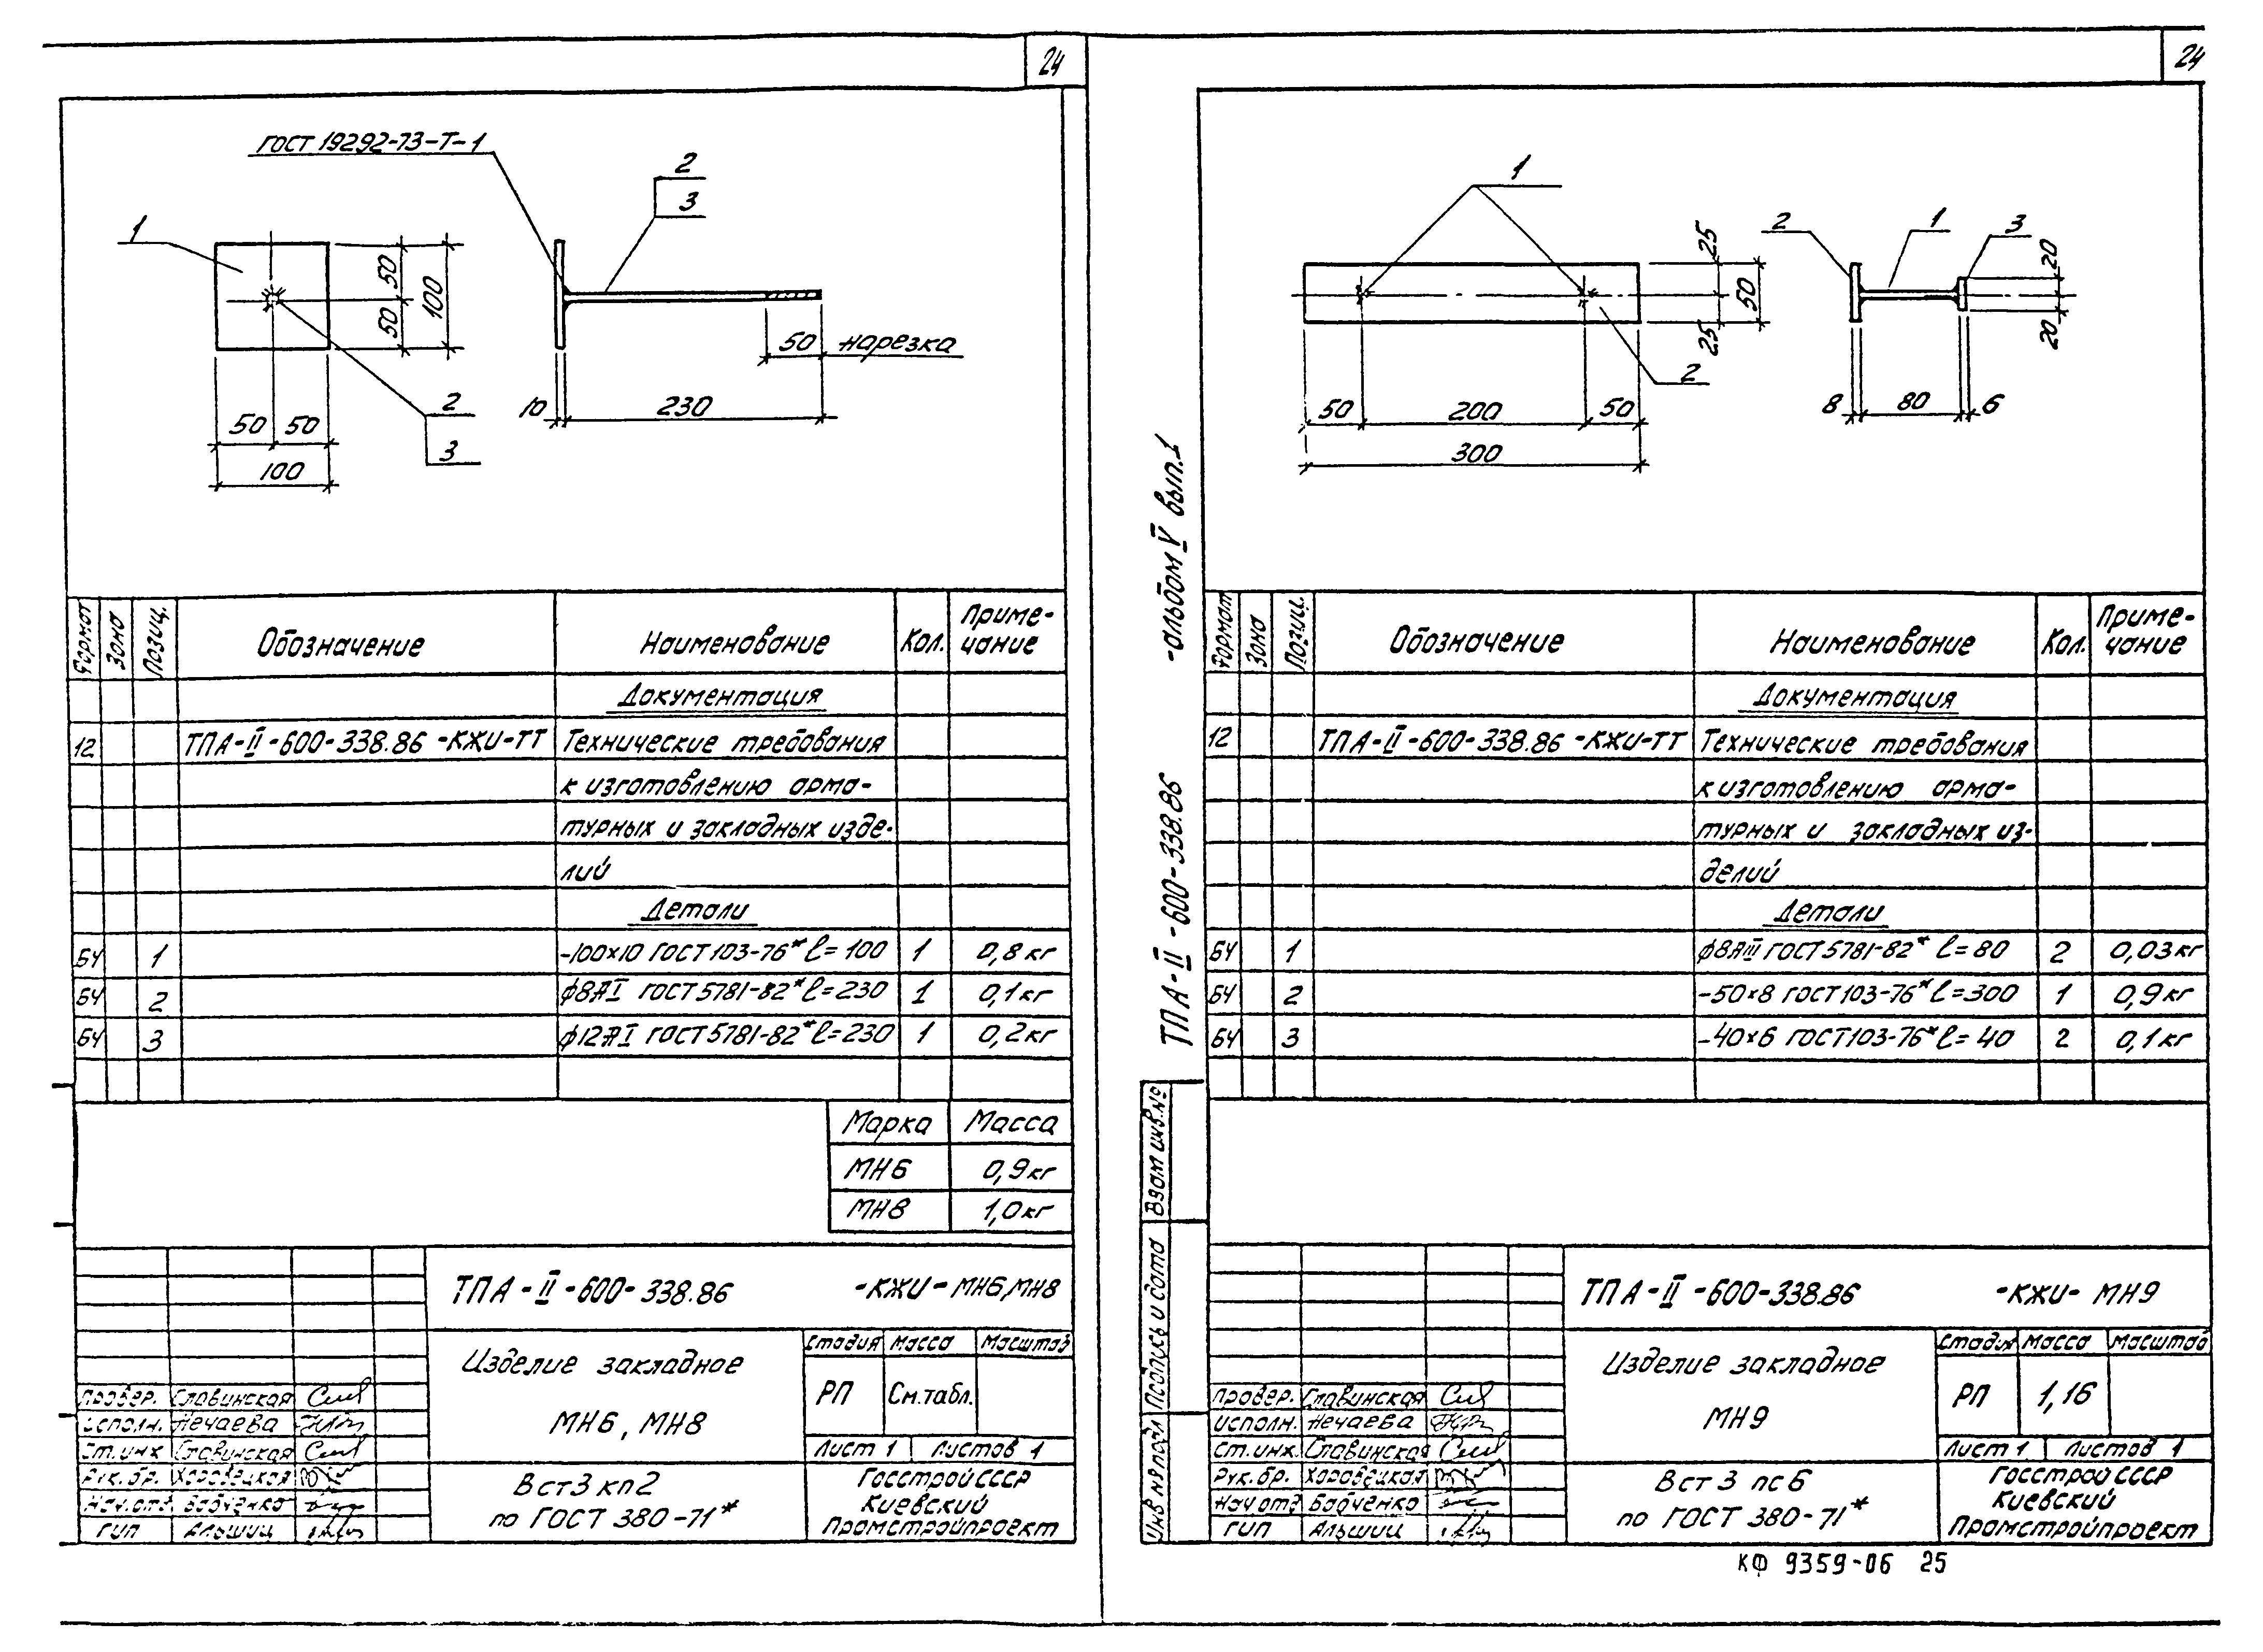 24
ГОСТ 19292-73-Т-1
1
2
3
50
50
100
50
50
100
2
3
10
230
50 нарезка
Формат
Зона
Позиц.
Обозначение
Наименование
Кол.
Приме-
чание
Документация
12 ТПА-II-600-338.86 -КЖИ-ТТ Технические требования
к изготовлению арма-
турных и закладных изде-
лий
Детали
БЧ 1 -100х10 ГОСТ 103-76* ℓ=100 1 0,8 кг
БЧ 2 ф8АI ГОСТ 5781-82* ℓ=230 1 0,1 кг
БЧ 3 ф12АI ГОСТ 5781-82* ℓ=230 1 0,2 кг
Марка Масса
МН6 0,9 кг
МН8 1,0 кг
ТПА-II-600-338.86 -КЖИ- МН6, МН8
Изделие закладное
МН6, МН8
Стадия Масса Масштаб
РП См. табл.
Лист 1 Листов 1
Вст3 кп2
по ГОСТ 380-71*
Госстрой СССР
Киевский
Промстройпроект
Провер. Славинская
Исполн. Нечаева
Ст. инж. Славинская
Рук. бр. Хоровецкая
Нач. отд. Бабченко
ГИП Альшиц
24
1
2
25
50
25
50
200
50
300
2
1
3
20
20
8
80
6
ТПА-II-600-338.86 -альбом V вып.1
Взам инв.№
Подпись и дата
Инв № подл
Формат
Зона
Позиц.
Обозначение
Наименование
Кол.
Приме-
чание
Документация
12 ТПА-II-600-338.86 -КЖИ-ТТ Технические требования
к изготовлению арма-
турных и закладных из-
делий
Детали
БЧ 1 ф8АIII ГОСТ 5781-82* ℓ=80 2 0,03 кг
БЧ 2 -50х8 ГОСТ 103-76* ℓ=300 1 0,9 кг
БЧ 3 -40х6 ГОСТ 103-76* ℓ=40 2 0,1 кг
ТПА-II-600-338.86 -КЖИ- МН9
Изделие закладное
МН9
Стадия Масса Масштаб
РП 1,16
Лист 1 Листов 1
Вст3 пс6
по ГОСТ 380-71*
Госстрой СССР
Киевский
Промстройпроект
Провер. Славинская
Исполн. Нечаева
Ст. инж. Славинская
Рук. бр. Хоровецкая
Нач отд Бабченко
ГИП Альшиц
КФ 9359-06 25